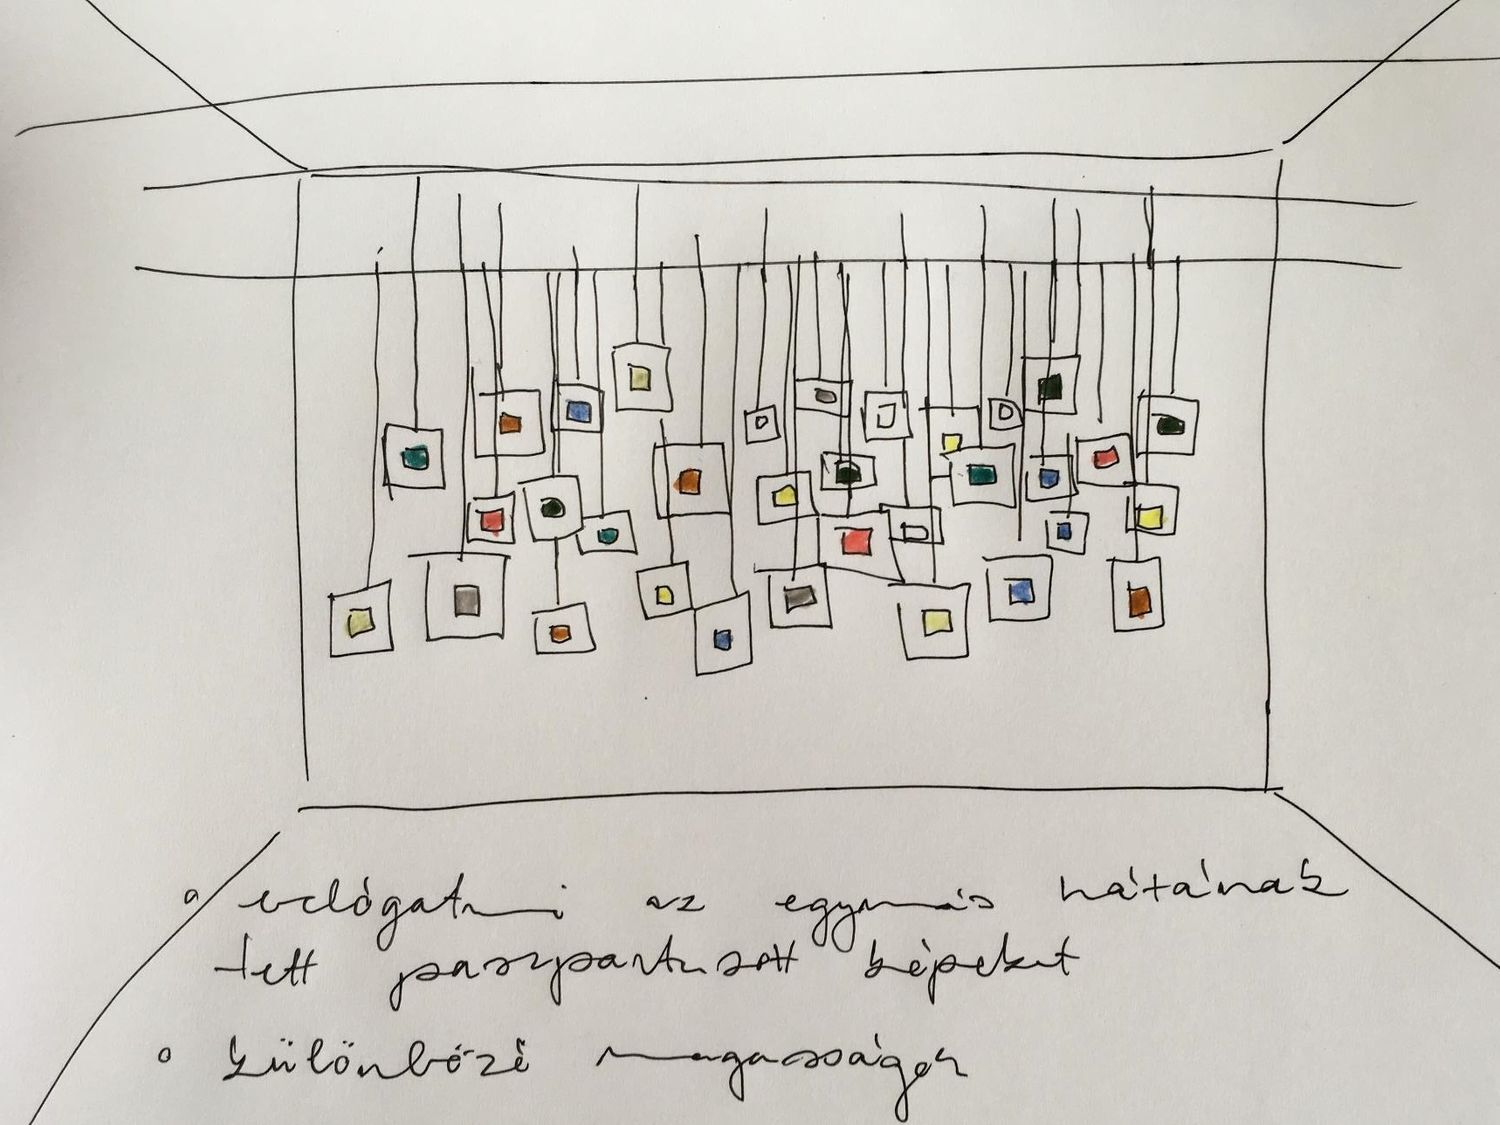 ∘ belógatni az egymás hátának
tett paszpartuzott képeket
∘ különböző magasságok